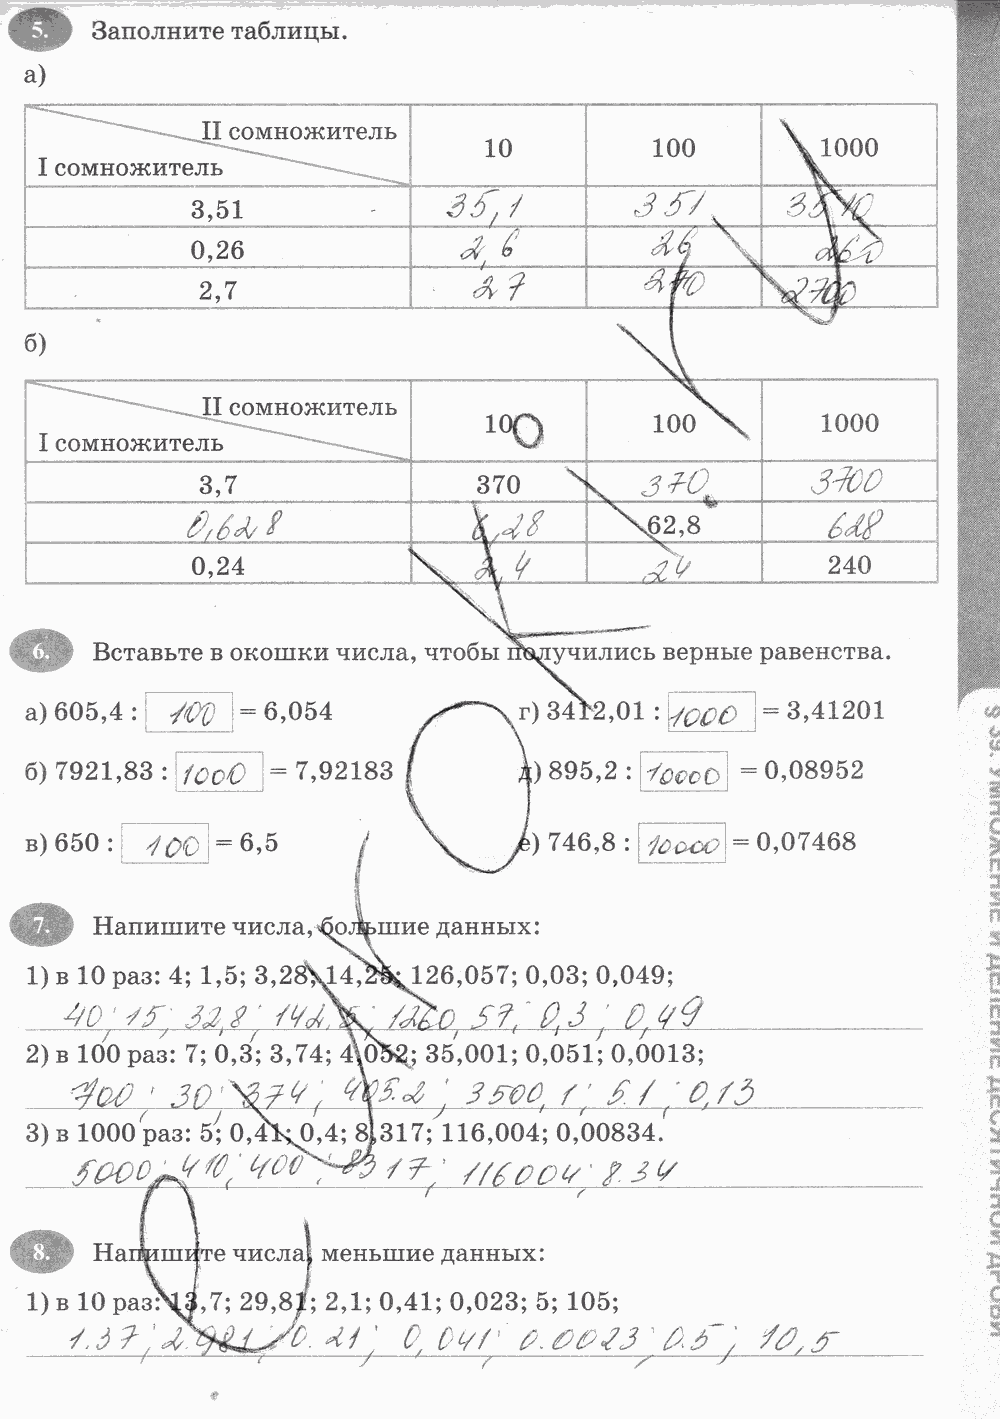 5. Заполните таблицы.
а)
II сомножитель
I сомножитель
10 100 1000
3,51 35,1 351 3510
0,26 2,6 26 260
2,7 27 270 2700
б)
II сомножитель
I сомножитель
100 100 1000
3,7 370 370 3700
0,628 6,28 62,8 628
0,24 2,4 24 240
6. Вставьте в окошки числа, чтобы получились верные равенства.
а) 605,4 : 100 = 6,054 г) 3412,01 : 1000 = 3,41201
б) 7921,83 : 1000 = 7,92183 д) 895,2 : 10000 = 0,08952
в) 650 : 100 = 6,5 е) 746,8 : 10000 = 0,07468
7. Напишите числа, большие данных:
1) в 10 раз: 4; 1,5; 3,28; 14,25; 126,057; 0,03; 0,049;
40; 15; 32,8; 142.5; 1260,57; 0,3; 0,49
2) в 100 раз: 7; 0,3; 3,74; 4,052; 35,001; 0,051; 0,0013;
700; 30; 374; 405.2; 3500,1; 5.1; 0,13
3) в 1000 раз: 5; 0,41; 0,4; 8,317; 116,004; 0,00834.
5000; 410; 400; 8317; 116004; 8.34
8. Напишите числа, меньшие данных:
1) в 10 раз: 13,7; 29,81; 2,1; 0,41; 0,023; 5; 105;
1.37; 2.981; 0.21; 0,041; 0.0023; 0.5; 10,5
§ 39. УМНОЖЕНИЕ И ДЕЛЕНИЕ ДЕСЯТИЧНОЙ ДРОБИ